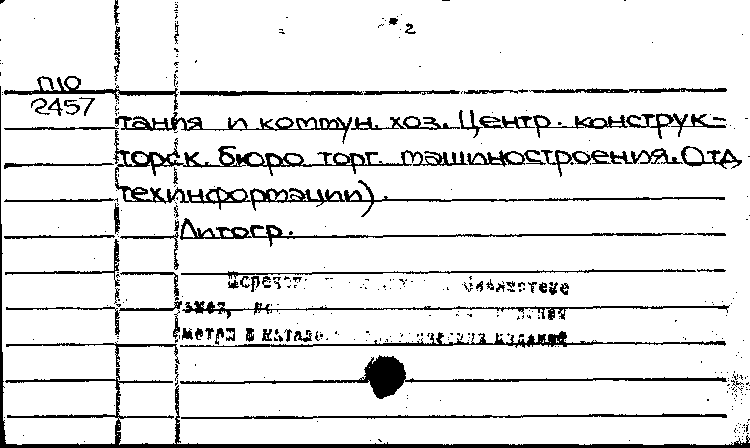 2
П10
2457
тания и коммун. хоз. Центр. конструк-
торск. бюро торг. машиностроения. Отд.
техинформации).
Литогр.
библиотеке
смотри в
изданий